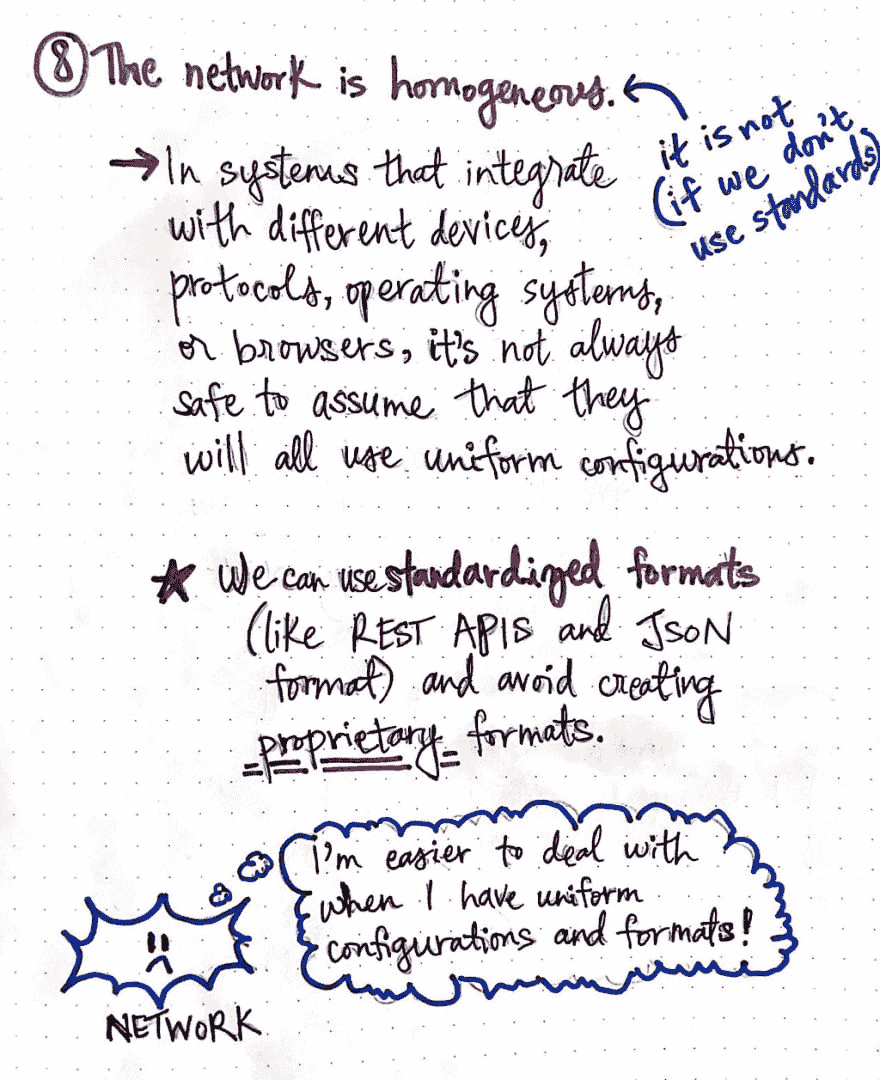 8 The network is homogeneous.
it is not
(if we don't
use standards)
→ In systems that integrate
with different devices,
protocols, operating systems,
or browsers, it's not always
safe to assume that they
will all use uniform configurations.
★ We can use standardized formats
(like REST APIS and JSON
format) and avoid creating
proprietary formats.
I'm easier to deal with
when I have uniform
configurations and formats!
NETWORK